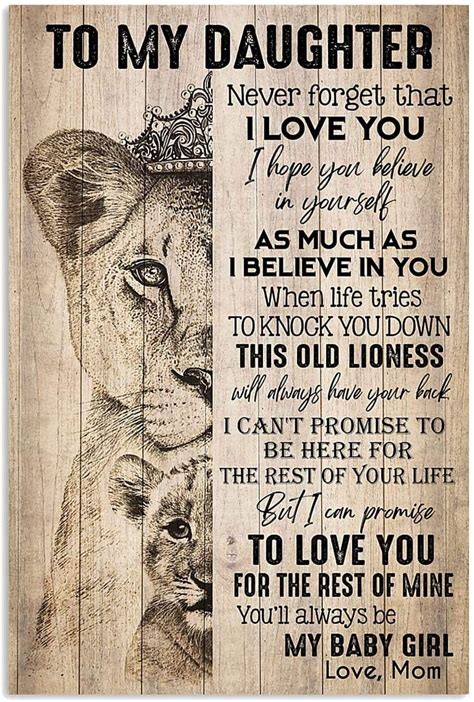 TO MY DAUGHTER
Never forget that
I LOVE YOU
I hope you believe
in yourself
AS MUCH AS
I BELIEVE IN YOU
When life tries
TO KNOCK YOU DOWN
THIS OLD LIONESS
will always have your back
I CAN'T PROMISE TO
BE HERE FOR
THE REST OF YOUR LIFE
But I can promise
TO LOVE YOU
FOR THE REST OF MINE
You'll always be
MY BABY GIRL
Love, Mom